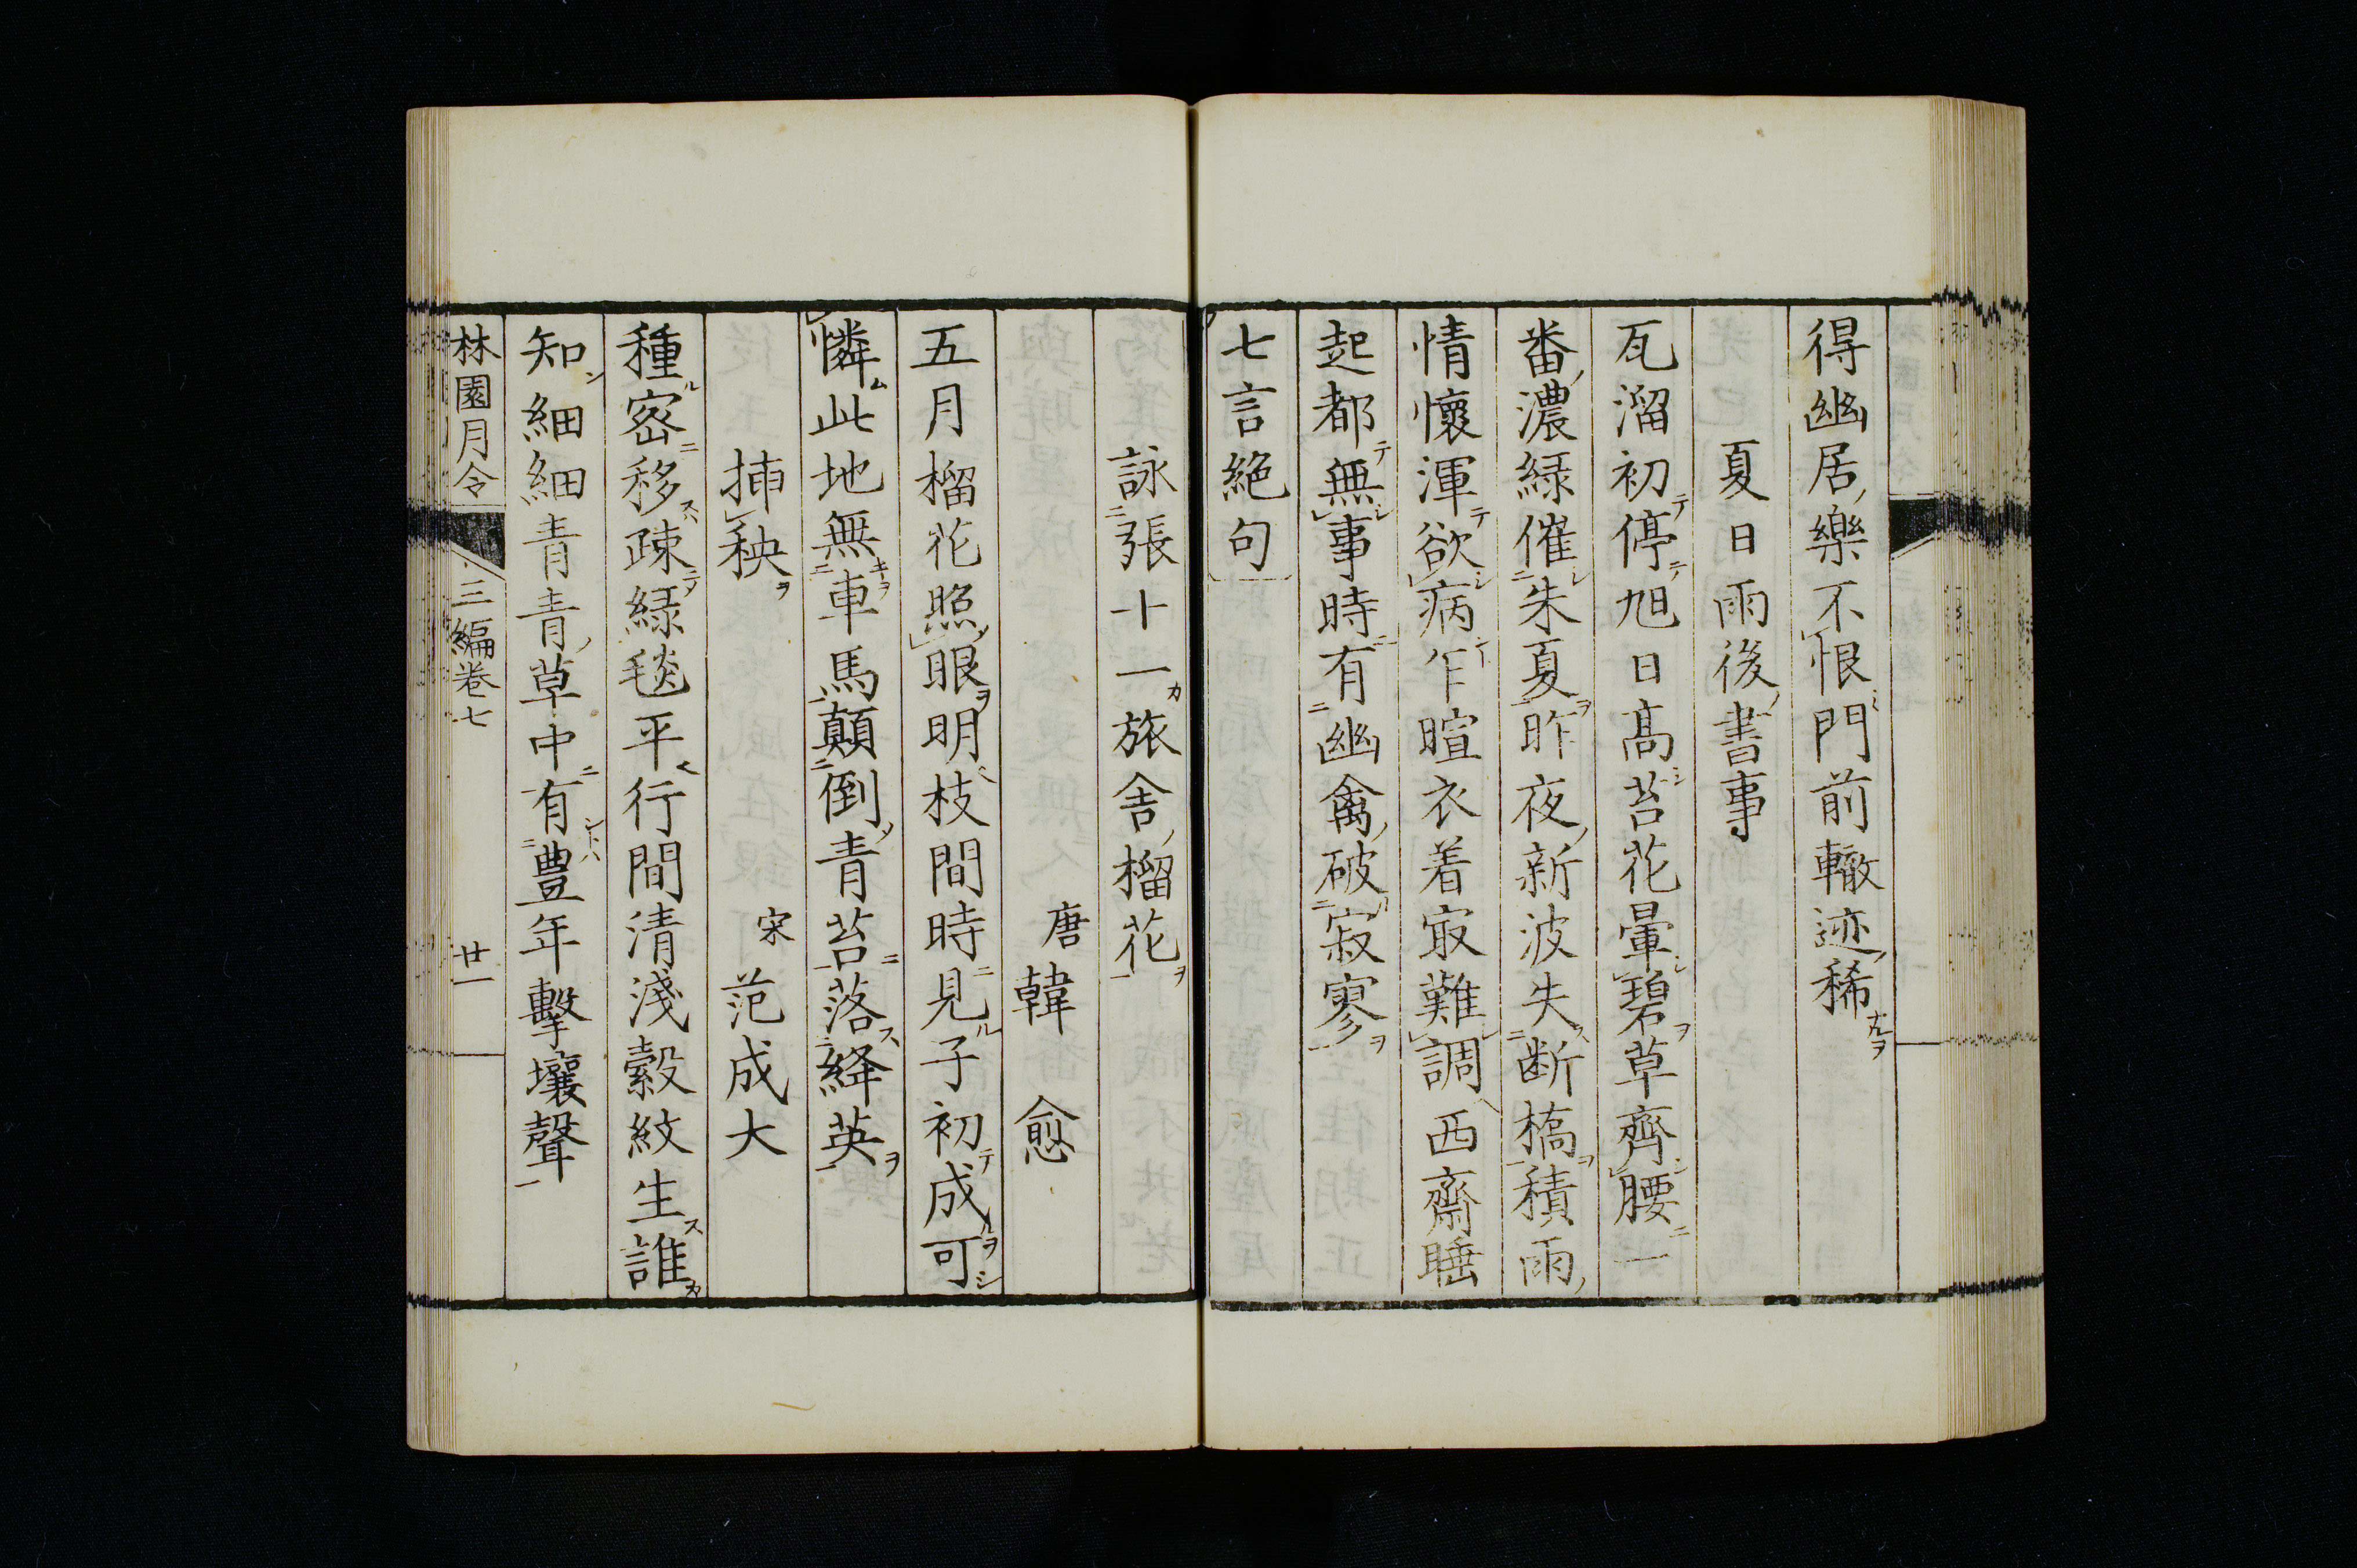 得幽居樂不恨門前轍迹稀
夏日雨後書事
瓦溜初停旭日高苔花暈碧草齊腰一
番濃緑催朱夏昨夜新波失断橋積雨
情懷渾欲病乍暄衣着㝡難調西齋睡
起都無事時有幽禽破寂寥
七言絶句
詠張十一旅舍榴花
唐 韓愈
五月榴花照眼明枝間時見子初成可
憐此地無車馬顛倒青苔落絳英
挿秧
宋 范成大
種宻移疎緑毯平行間清淺縠紋生誰
知細細青青草中有豊年擊壤聲
林園月令 三編卷七 廿一